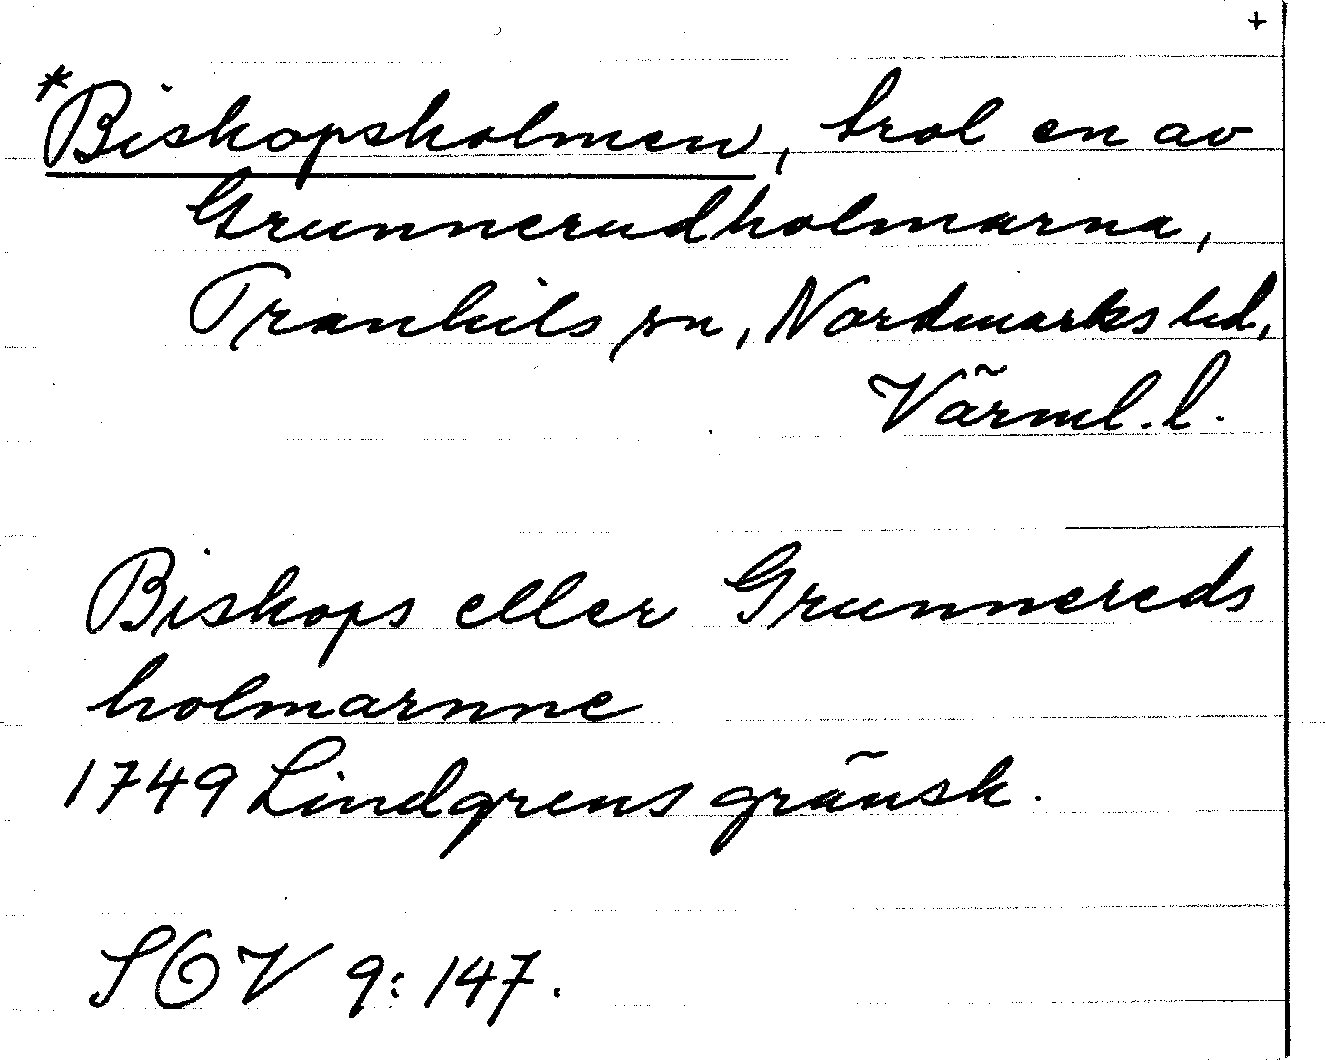 +
*Biskopsholmen, trol en av
Grunnerudholmarna,
Trankils sn, Nordmarks hd,
Värml. l.
Biskops eller Grunnereds
holmarnne
1749 Lindgrens gränsk.
SOV 9: 147.